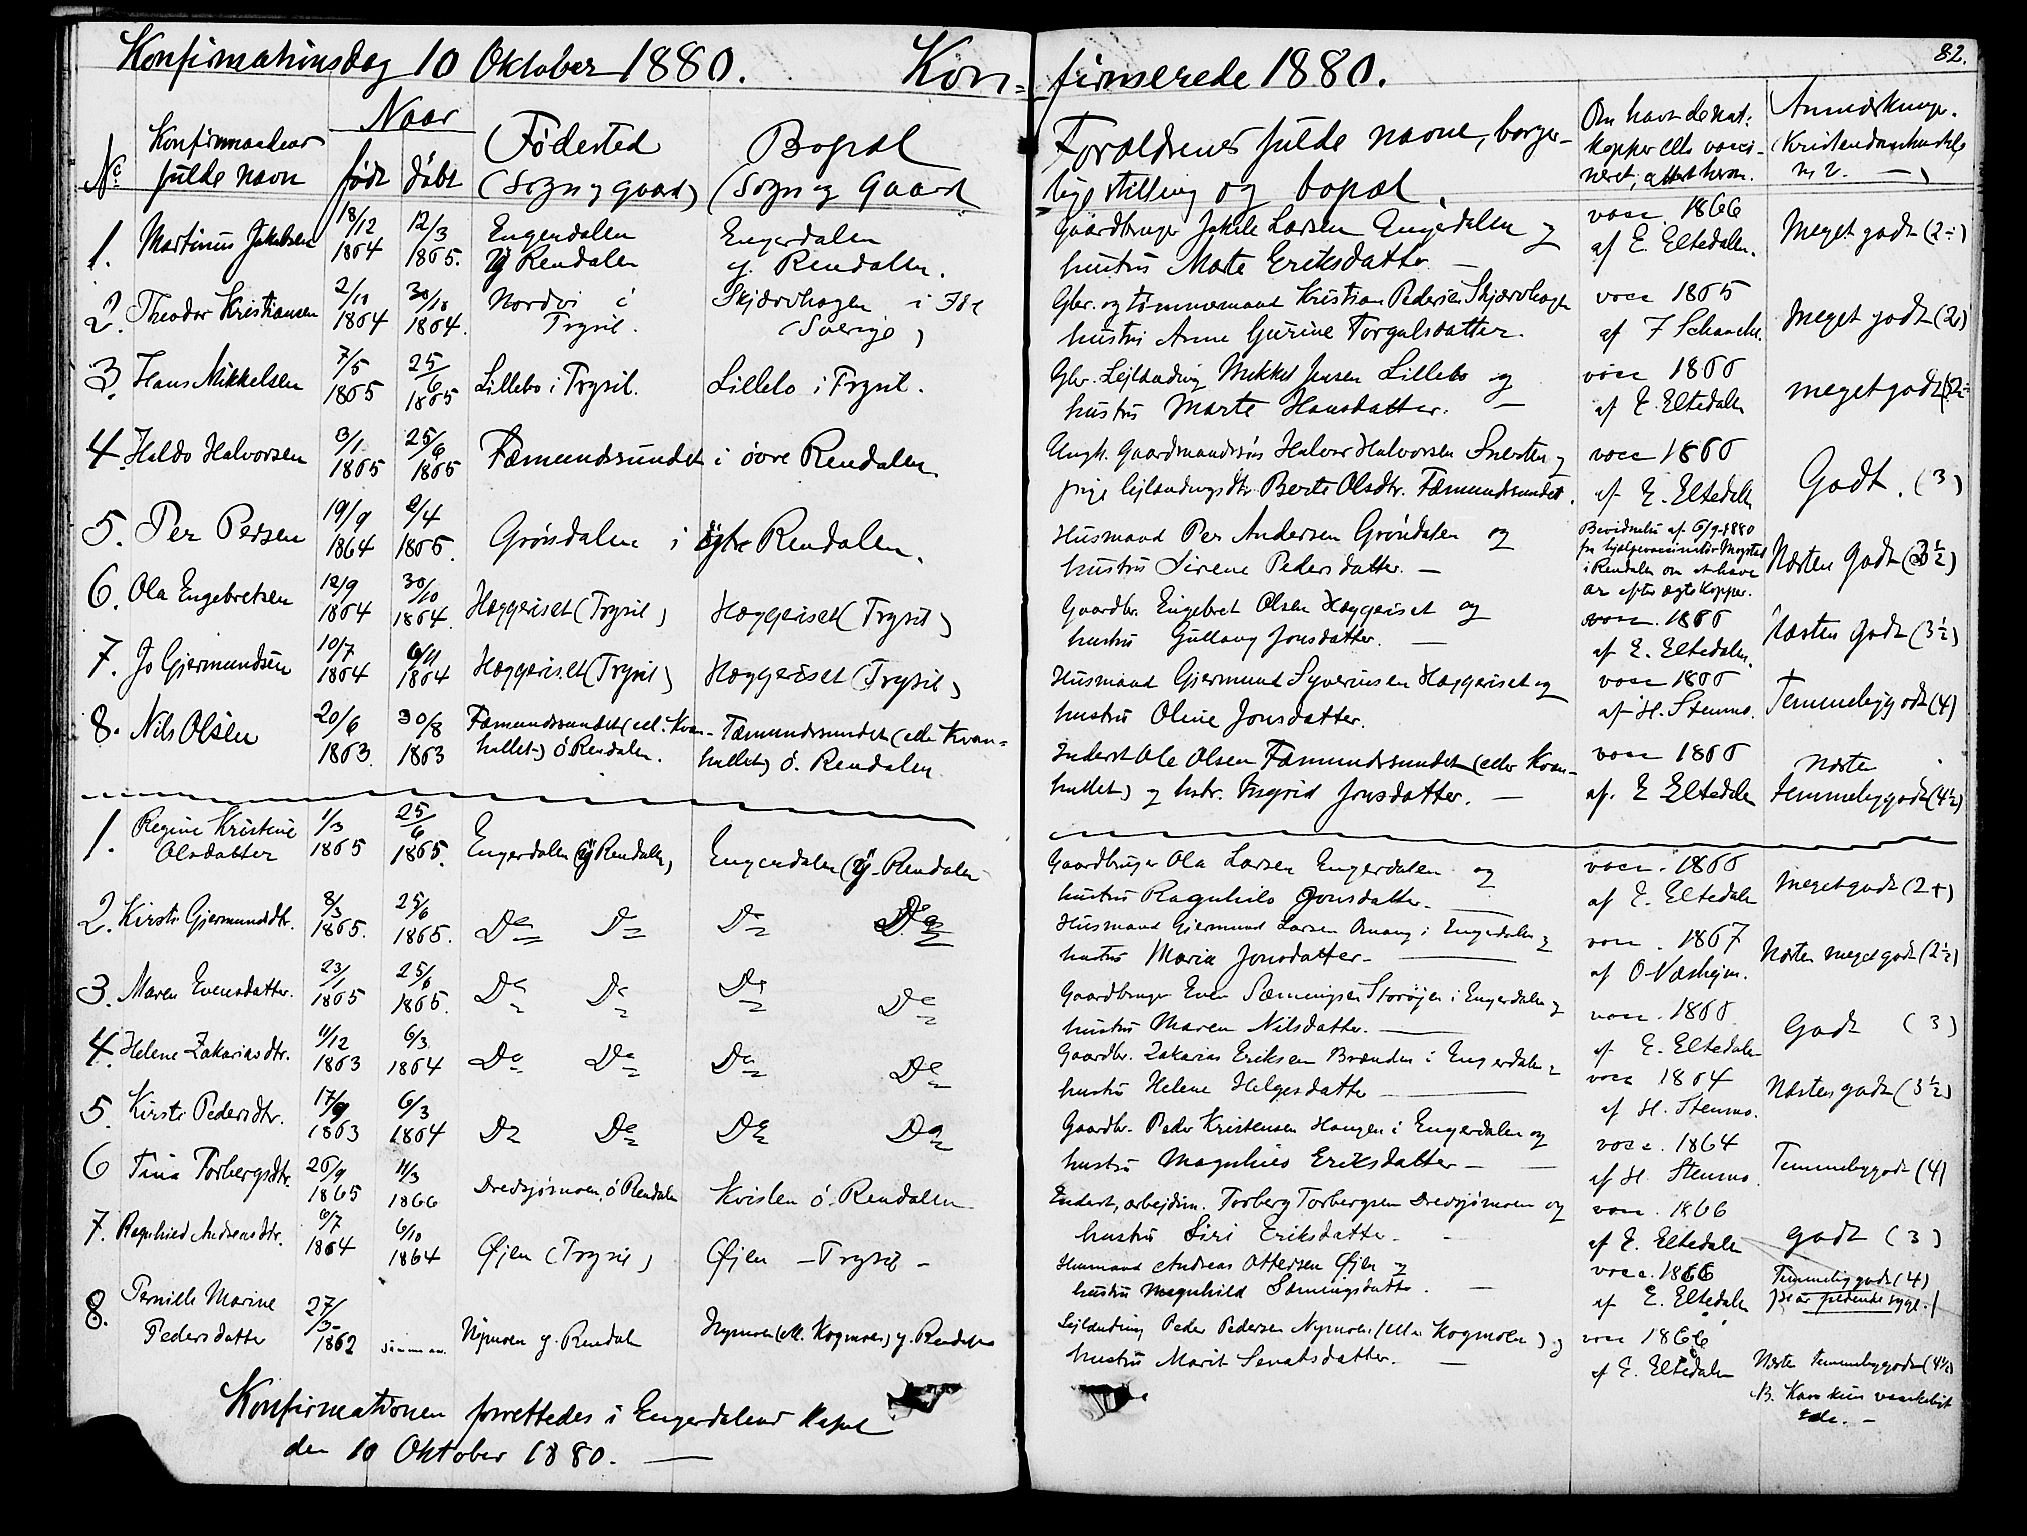 82.
Konfirmationsdag 10 Oktober 1880. Kon-
firmerede 1880.
No. Konfirmandens fulde navn
Naar
født døbt
Fødested (Sogn og gaard)
Bopæl (Sogn og Gaard
Forældrenes fulde navne, borger-
lige stilling og bopæl.
Om havt de nat: kopper elle vacci-
neret, attest herom.
Anmærkninge. (Kristendomskundsk.
m. v. —)
1. Martinus Jakobsen 18/12 1864 12/3 1865. Engerdalen y Rendalen Engerdalen y. Rendalen.
Gaardbruger Jakob Larsen Engerdalen og
hustru Marte Eriksdatter — vacc. 1866 af E. Eltedalen. Meget godt (2÷)
2. Theodor Kristiansen 2/10 1864 30/10 1864. Nordvi i Trysil. Skjærvhagen i Idre (Sverige)
Gbr. og tømmermand Kristian Pedersen Skjærvhagen
hustru Anne Gurine Torgalsdatter. vacc 1865 af F Schancke. Meget godt (2)
3. Hans Mikkelsen 7/5 1865 25/6 1865 Lillebo i Trysil. Lillebo i Trysil.
Gbr. Lejlænding Mikkel Jensen Lillebo og
hustru Marte Hansdatter. — vacc 1866 af E. Eltedalen meget godt (2÷
4. Haldo Halvorsen 3/1. 1865 25/6 1865 Fæmundsundet i øvre Rendalen
Ungk. Gaardmandssøn Halvor Halvorsen Snerten og
pige lejlændingsdtr. Berte Olsdtr. Fæmundsundet. vacc 1866 af E. Eltedalen Godt. (3)
5. Per Persen 19/9 1864 2/4 1865. Grøndalen i ytre Rendalen.
Husmand Per Andersen Grøndalen og
hustru Sirene Pedersdatter. — Bevidnelse af 6/9 1880
fra hjælpevaccinatør Mogstad
i Rendalen om at have
ar efter ægte kopper. Næsten Godt (3½)
6. Ola Engebretsen 12/9 1864 30/10 1864. Heggeriset (Trysil) Heggeriset (Trysil)
Gaardbr. Engebret Olsen Heggeriset og
hustru Gullaug Jonsdatter. — vacc. 1866 af E. Eltedalen. Næsten Godt (3½)
7. Jo Gjermundsen 10/7 1864 6/11 1864 Heggeriset (Trysil) Heggeriset (Trysil)
Husmand Gjermund Syversen Heggeriset og
hustru Oline Jonsdatter. vacc 1866 af H. Stenmo. Temmelig godt (4)
8. Nils Olsen 20/6 1863. 30/8 1863 Fæmundsundet (ell. Kvan-
hullet) ø Rendalen. Fæmundsundet (elle Kvan-
hullet) ø. Rendalen
Inderst Ole Olsen Fæmundssundet (eller Kvan-
hullet) og hstr. Ingrid Jonsdatter. — vacc 1866 af. E Eltedalen Næsten
temmelig godt (4½)
1. Regine Kristine
Olsdatter 1/3 1865 25/6 1865. Engerdalen (y Rendalen) Engerdalen (y. Rendalen
Gaardbruger Ola Larsen Engerdalen og
hustru Ragnhild Jonsdatter. — vacc. 1866 af E. Eltedalen Meget godt (2+)
2. Kirsti Gjermundsdtr. 8/3 1865. 25/6 1865. Do Do Do Do
Husmand Gjermund Larsen i Engerdalen og
hustru Maria Jonsdatter — vacc. 1867 af O Næshejm. Næsten meget godt (2½)
3. Maren Evensdatter. 23/1 1865 25/6 1865. Do Do Do Do
Gaardbruger Even Sæmingsen Storøjen i Engerdalen og
hustru Maren Nilsdatter. — vacc. 1866 af E. Eltedalen Godt (3)
4. Helene Zakariasdtr. 11/12 1863 6/3. 1864 Do Do Do Do
Gaardbr. Zakarias Eriksen Brænden i Engerdalen og
hustru Helene Helgesdatter — vacc 1864 af H. Stenmo. Næsten godt (3½)
5. Kirsti Pedersdtr. 17/9 1863 6/3 1864 Do Do Do Do
Gaardbr. Peder Kristensen Haugen i Engerdalen og
hustru Magnhild Eriksdatter — vacc. 1864 af H. Stenmo. Temmelig godt (4)
6 Tina Torbergsdtr. 26/9 1865 11/3 1866 Dredsjømoen, ø Rendalen Kvislen ø. Rendalen
Inderst, arbejdsm. Torberg Torbergsen Dredsjømoen og
hustru Siri Eriksdatter. — vacc. 1866 af E. Eltedalen godt (3)
7. Ragnhild Andreasdtr. 6/7 1864 6/10 1864 Øjen (Trysil) Øjen – Trysil –
Husmand Andreas Ottersen Øjen og
hustru Magnhild Sæmingsdatter. — vacc. 1866 af E. Eltedalen Temmelig godt (4)
8. Pernille Marine
Pedersdatter 27/3 1862 Nymoen y. Rendal Nymoen (ell. Kogmoen) y. Rendalen
Lejlænding Peder Pedersen Nymoen (eller Kogmoen) og
hustru Marit Senatsdatter. — vacc 1866 af E. Eltedalen Næsten temmelig godt (4½)
Konfirmationen forrettedes i Engerdalens Kapel
den 10 Oktober 1880. —